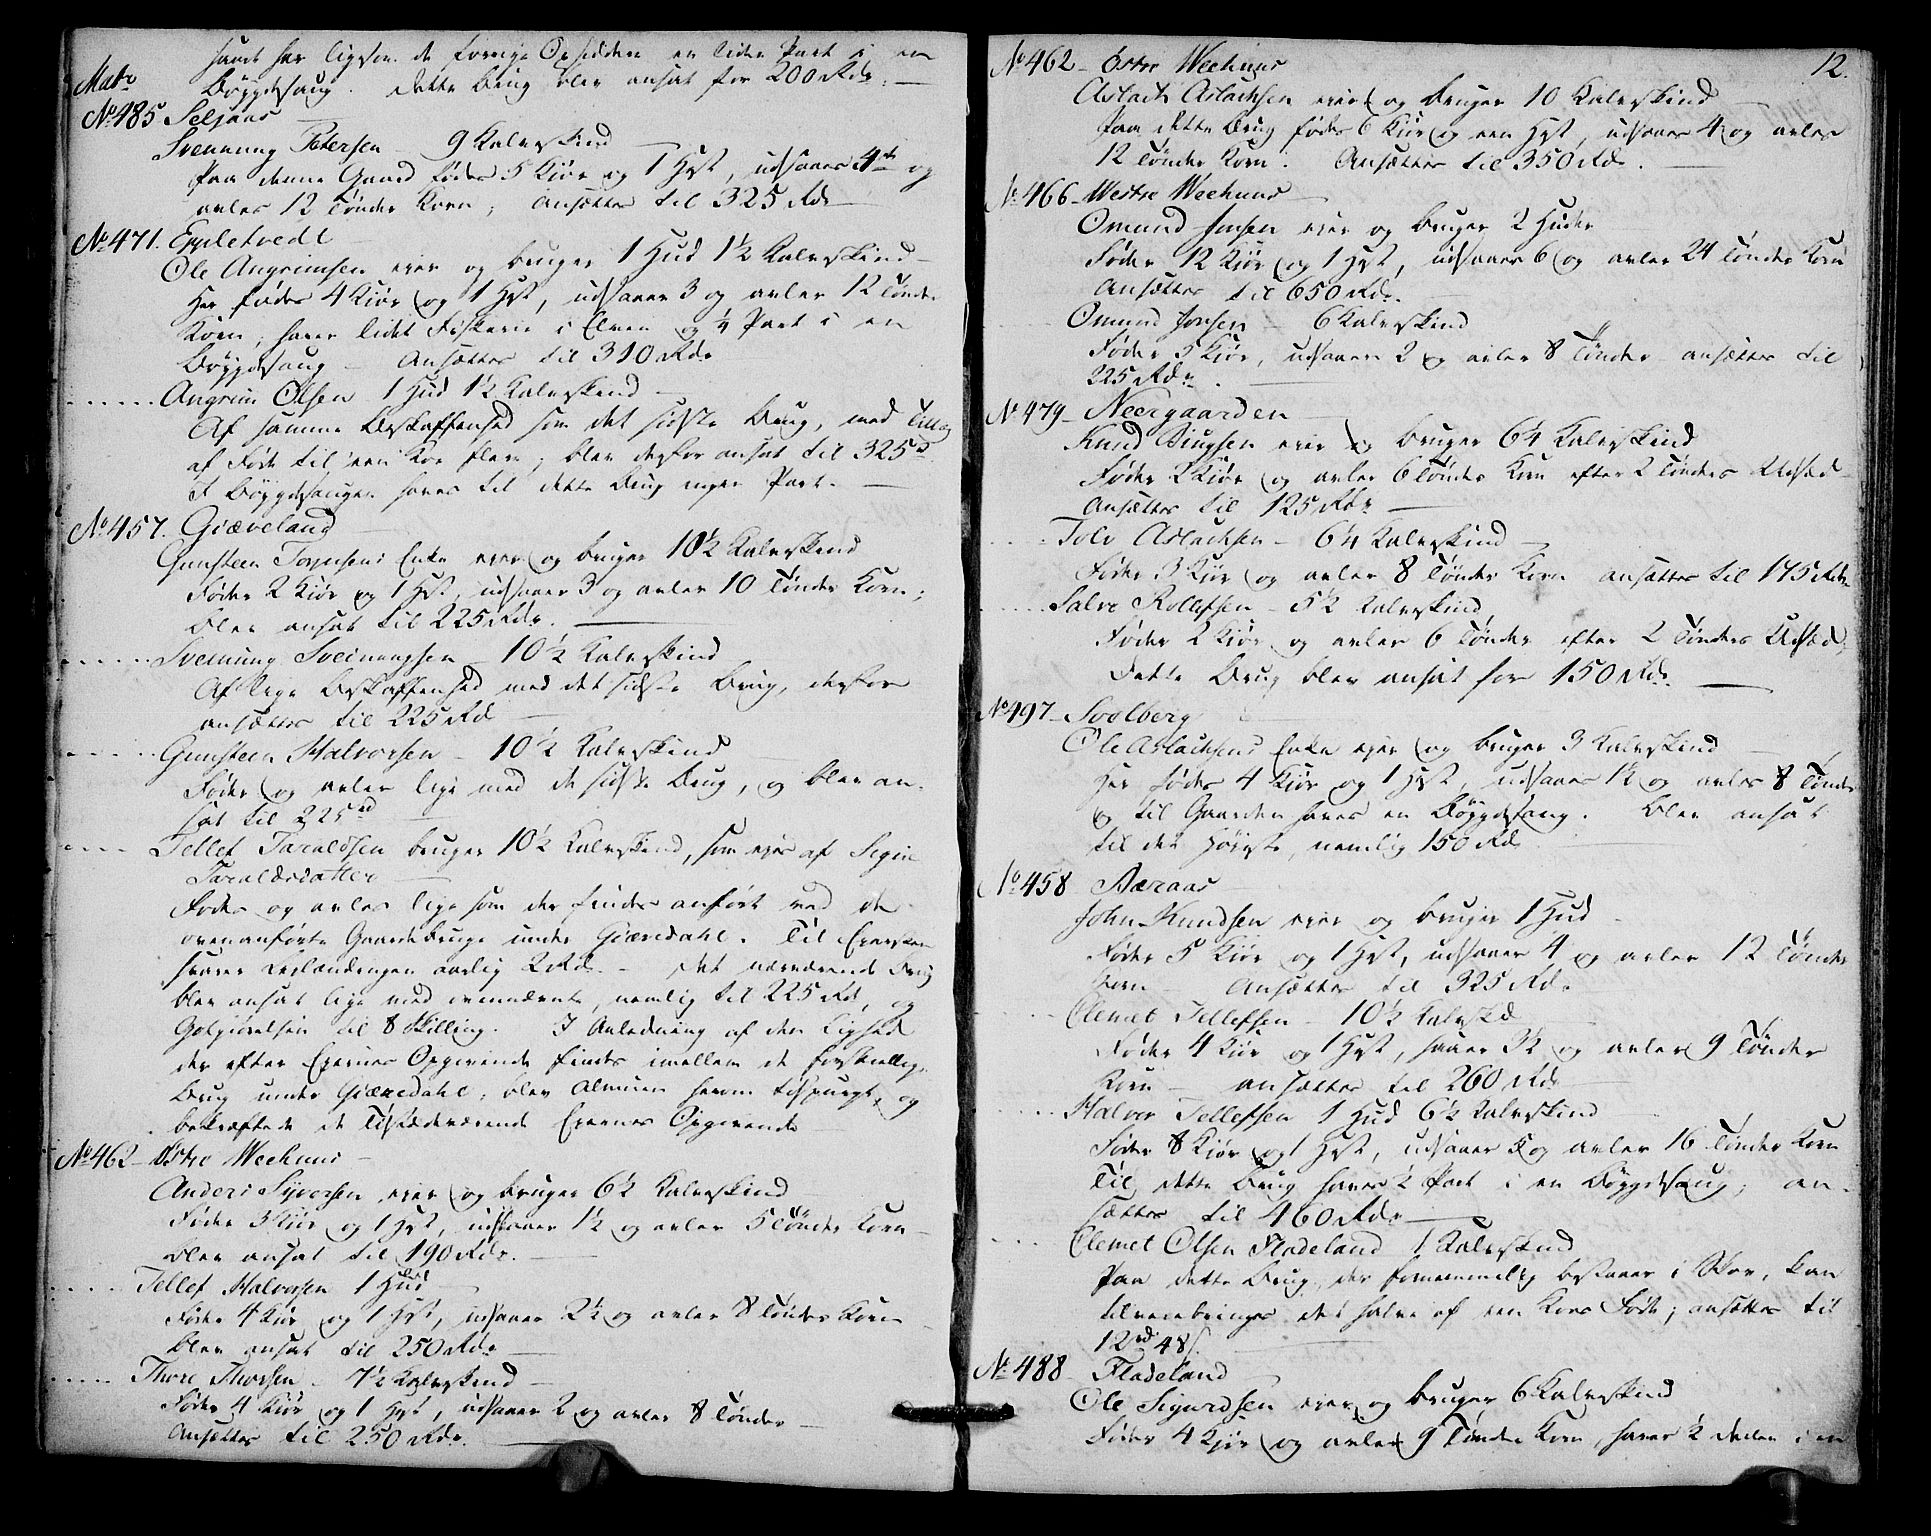 haves her ligsom de forrige Opsiddere en liden Part i en
Matr. Bøygdesaug. Dette Brug blev ansat for 200 Rdr. —
No. 485 Seljaas —
Svennung Petersen — 9 Kalvskind —
Paa denne Gaard fødes 5 Kiør og 1 Hest, udsaaes 4 og
avles 12 Tønder Korn; Ansættes til 325 Rdr —
No. 471. Eppletvedt —
Ole Angrimsen ejer og bruger 1 Hud 1½ Kalvskind —
Her fødes 4 Kiør og 1 Hest, udsaaes 3 og avles 12 Tønder
Korn, haver lidet Fiskerie i Elven og ¼ Part i en
Bøygdesaug — Ansættes til 310 Rdr
Angrim Olsen 1 Hud 1½ Kalvskind —
Af samme Beskaffenhed som det sidste Brug, med Tillæg
af Føde til een Koe flere; blev derfor ansat til 325 rd
I Bøygdesaugen haves til dette Brug ingen Part. —
No. 457. Giæveland —
Gunsteen Enke ejer og bruger 10½ Kalvskind
Føder 2 Kiør og 1 Hest, udsaaer 3 og avler 10 Tønder Korn;
blev ansat til 225 Rdr. —
Svennung Svennungsen — 10½ Kalvskind
Af lige Beskaffenhed med det sidste Brug, derfor
ansættes til 225 Rd —
Gunsteen Halvorsen — 10½ Kalvskind —
Føder og avler lige med de sidste Brug, og blev an-
sat til 225 rd
Tellef Taraldsen bruger 10½ Kalvskind, som ejes af Sigri
Taraldsdatter —
Føder og avler lige som der findes anført ved de
ovenanførte Gaardebruge under Giævedahl. Til Ejersken
svarer aarlig 2 Rd. — Det nærværende Brug
blev ansat lige med ovennævnte, nemlig til 225 Rd, og
til 8 Skilling. I Anledning af den Lighed
der efter Ejernes Opgivende findes imellem de forskiellige
Brug under Giævedahl, blev Almuen herom tilspurgt, og
bekræftede de Tilstædeværende Ejernes Opgivende —
No. 462 — Østre Weehuus —
Anders Syversen ejer og bruger 6½ Kalvskind
Føder 3 Kiør og 1 Hest, udsaaer 1½ og avler 5 Tønder Korn —
blev ansat til 190 Rdr. —
Tellef Halvorsen 1 Hud —
Føder 4 Kiør og 1 Hest, udsaaer 2½ og avler 8 Tønder Korn —
blev ansat til 250 Rdr —
Thore Thorsen — 7½ Kalvskind —
Føder 4 Kiør og 1 Hest, udsaaer 2 og avler 8 Tønder —
Ansættes til 250 Rdr. —
12.
No. 462 — Østre Weehuus
Aslach Aslachsen ejer og bruger 10 Kalvskind —
Paa dette Brug fødes 6 Kiør og een Hest, udsaaes 4 og avles
12 Tønder Korn. Ansættes til 350 Rdr. —
No. 466 — Westre Weehuus —
Omund Jonsen ejer og bruger 2 Huder
Føder 12 Kiør og 1 Hest, udsaaer 6 og avler 24 Tønder Korn
Ansættes til 650 Rdr. —
Omund Jonsen — 6 Kalvskind
Føder 3 Kiør, udsaaer 2 og avler 8 Tønder — ansættes til
225 Rdr. —
No. 479 — Neergaarden —
Knud ejer og bruger 6¼ Kalvskind
Føder 2 Kiør og avler 6 Tønder Korn efter 2 Tønders Udsæd —
Ansættes til 125 Rdr —
Tolv Aslachsen — 6¼ Kalvskind —
Føder 3 Kiør og avler 8 Tønder Korn ansættes til 175 Rdr
Salve Rollefsen — 5½ Kalvskind
Føder 2 Kiør og avler 6 Tønder efter 2 Tønders Udsæd
Dette Brug blev ansat for 150 Rdr. —
No. 497 — Soelberg —
Ole Aslachsens Enke ejer og bruger 3 Kalvskind —
Her fødes 4 Kiør og 1 Hest, udsaaes 1½ og avles 8 Tønder
og til Gaarden haves en Bøygdesaug. Blev ansat
til det Høieste, nemlig 150 Rd
No. 458 Aaraas —
John Knudsen ejer og bruger 1 Hud —
Føder 5 Kiør og 1 Hest, udsaaer 4 og avler 12 Tønder
Korn — Ansættes til 325 Rdr
Clemet Tellefsen — 10½ Kalvskd
Føder 4 Kiør og 1 Hest, saaer 3½ og avler 9 Tønder
Korn — ansættes til 260 Rdr
Halvor Tellefsen 1 Hud 6½ Kalvskind —
Føder 8 Kiør og 1 Hest, udsaaer 5 og avler 16 Tønder Korn
Til dette Brug haves ½ Part i en Bøygdesaug; an-
sættes til 460 Rdr —
Clemet Olsen Fladeland 1 Kalvskind
Paa dette Brug, der fornemmelig bestaaer i Skov, kan
tilveiebringes det halve af een Koes Føde; ansættes til
12 rd 48 s. —
No. 488 — Fladeland —
Ole Sigurdsen ejer og bruger 6 Kalvskind
Føder 4 Kjør og avler 9 Tønder Korn, haver ½ Deel i en